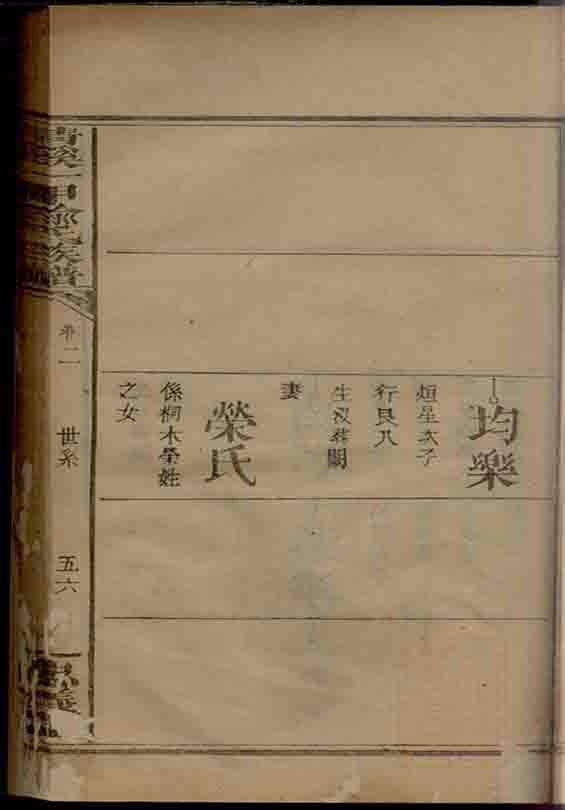 均樂
烜星次子
行良八
生歿葬闕
妻
榮氏
係桐木榮姓
之女
卷二
世系
五六